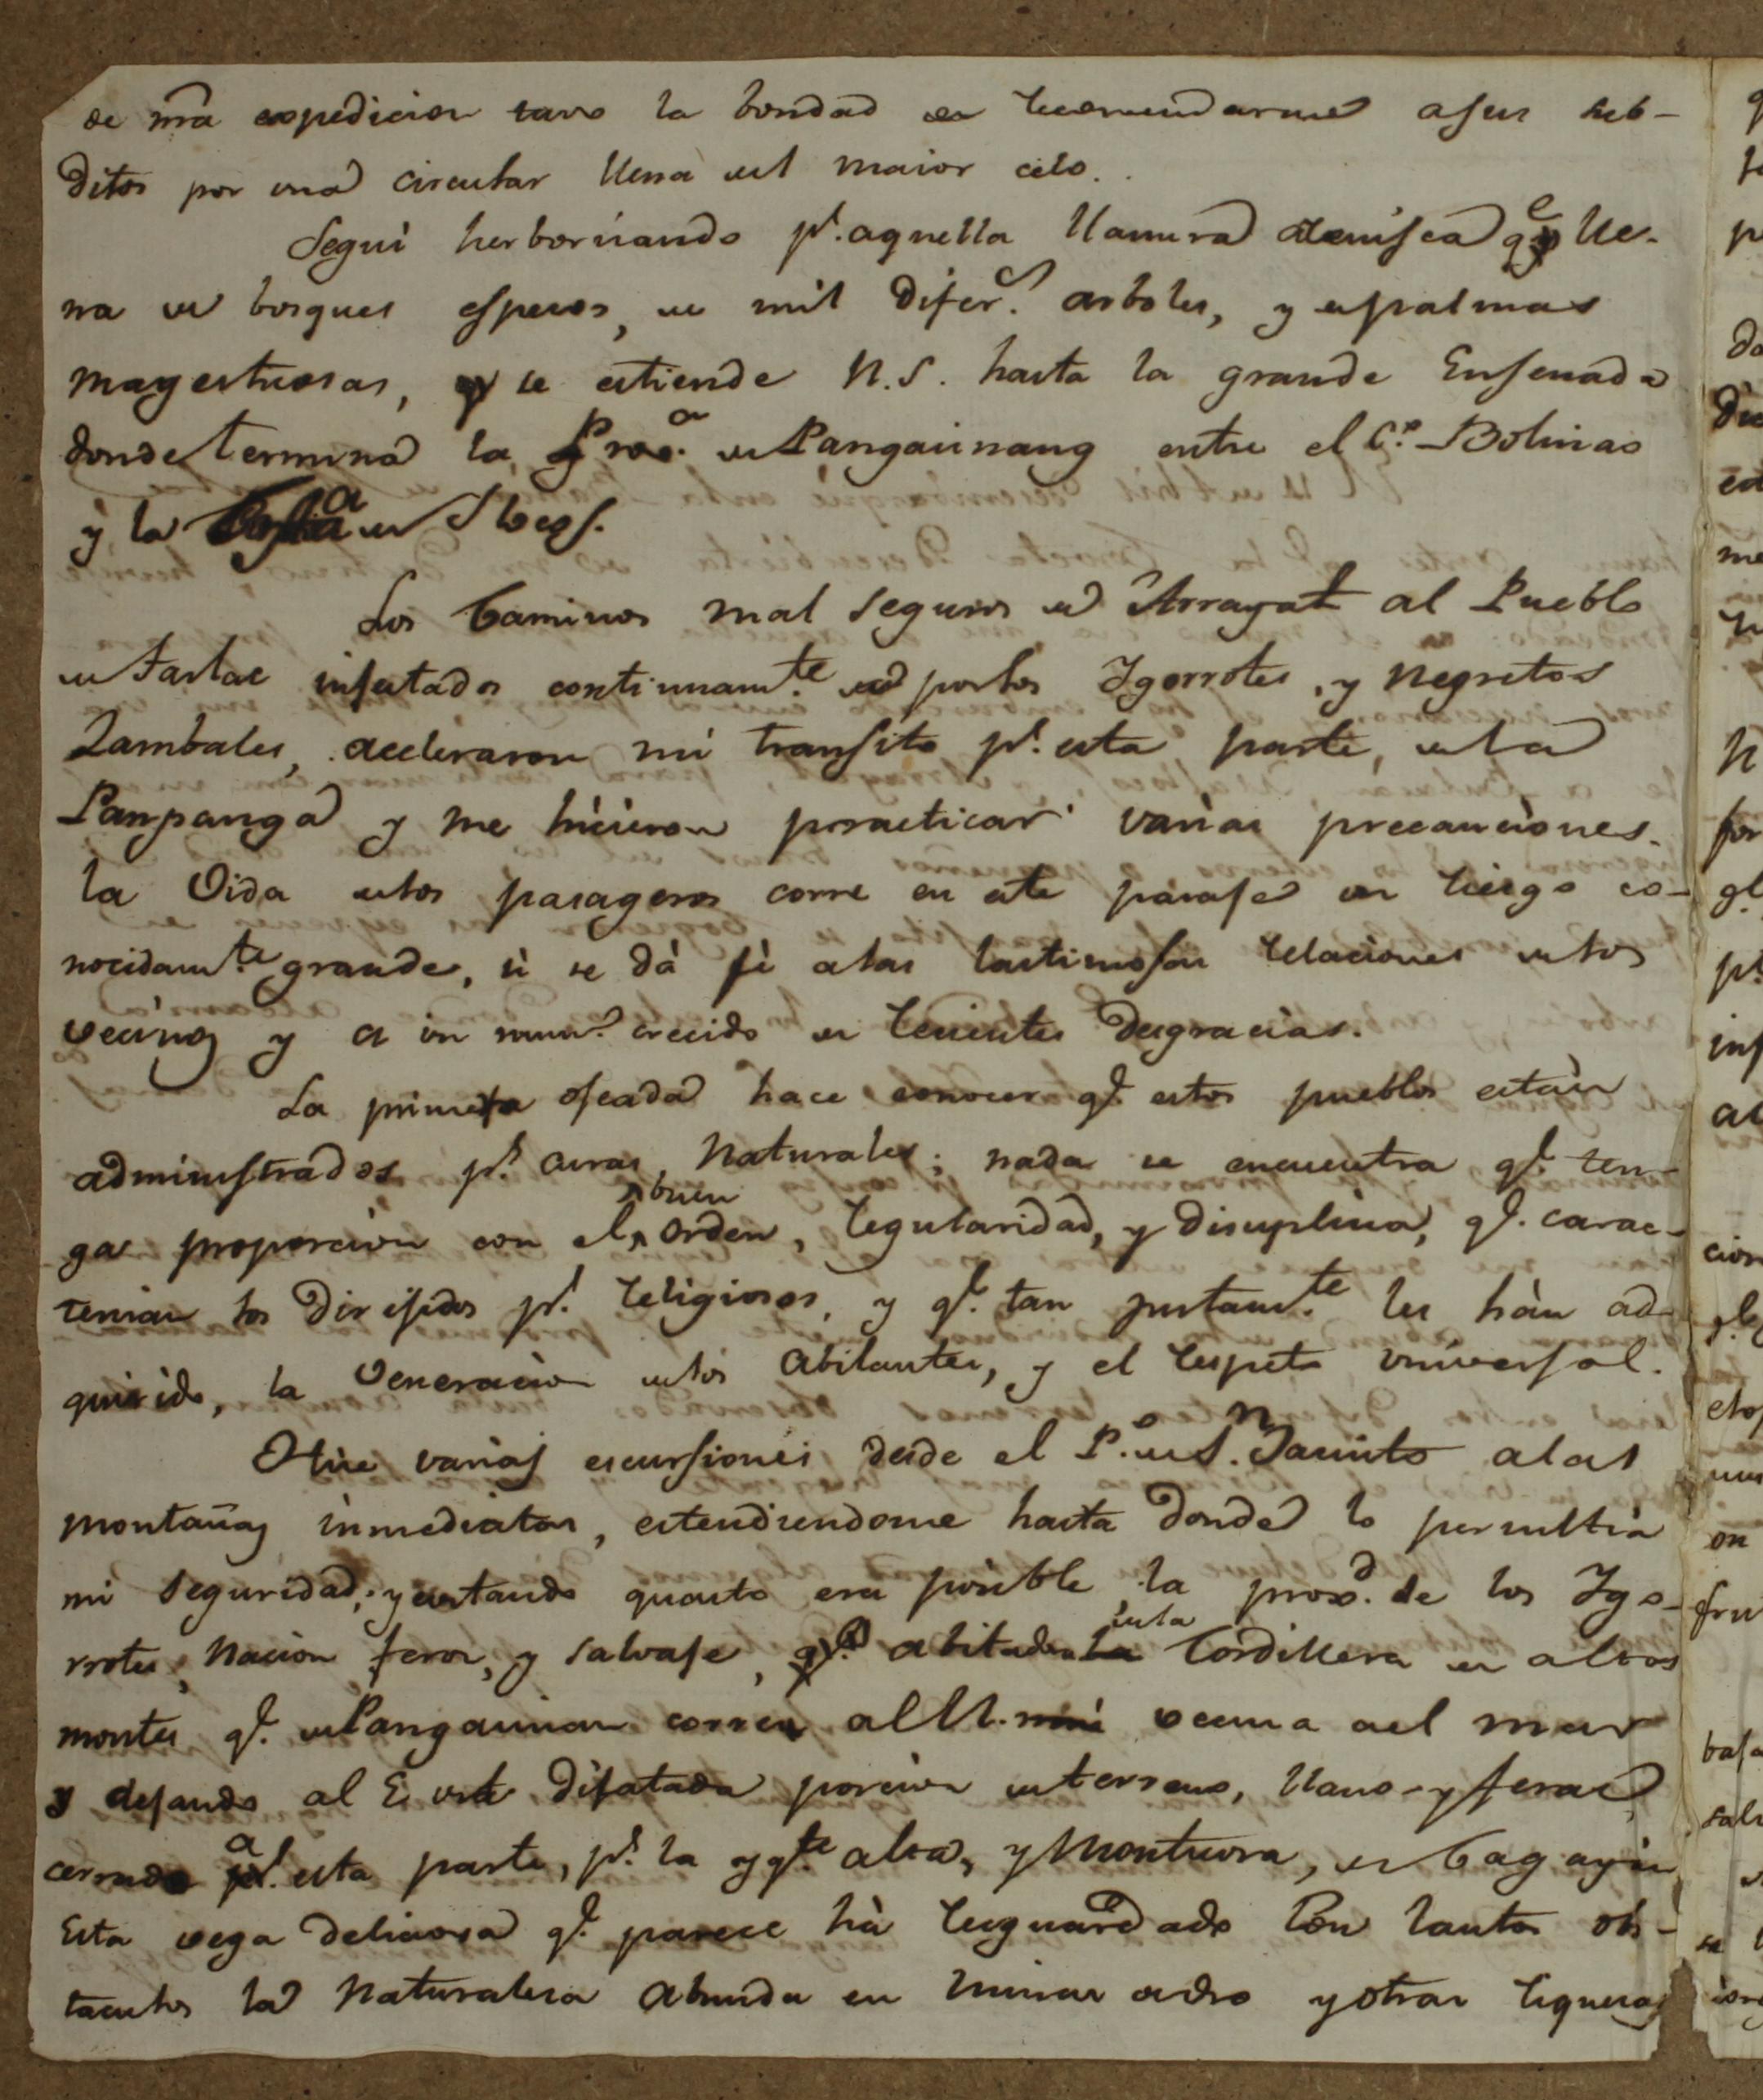 de nrâ expedicion tuvo la bondad de recomendarme a sus sub-
ditos por una circular llena del maior celo.
Seguì herborizando pr. aquella llanura qe. lle-
na de bosques espesos, de mil diferes. arboles, y de palmas
magestuosas, se estiende N.S. hasta la grande Ensenada
donde termina la Proa. de Pangasinang entre el Co. Bolinao
y la Costa de Ilocos.
Los Caminos mal seguros de Arrayat al Pueblo
de Tarlac infestados continuamte. por los Ygorrotes, y Negritos
Zambales, aceleraron mi transito pr. esta parte, de la
Panpanga y me hicieron practicar varias precauciones.
la Vida de los pasageros corre en este parage un riesgo co-
nocidamte. grande, si se dà fè a las lastimosas relaciones de los
vecinos y a un numo. crecido de recientes desgracias.
La primera ojeada hace conocer qe. estos pueblos estàn
administrados pr. curas Naturales; nada se encuentra qe. ten-
ga proporcion con el buen orden, regularidad, y disciplina, qe. carac-
terizan los dirigidos pr. religiosos, y qe. tan justamte. les hàn ad-
quirido, la Veneracion de los Abitantes, y el respeto universal.
Hize varias escursiones desde el Po. de Sn. Jacinto a las
montañas inmediatas, estendiendome hasta donde lo permitia
mi seguridad, y evitando quanto era posible la proxd. de los Ygo-
rrotes, Nacion feroz, y salvaje, qe. abitada en la Cordillera de altos
montes qe. de Pangasinan corren al N. vecina del mar
y dejando al E. una dilatada porcion de terreno, llano y feraz
cerrada a esta parte, pr. la ygte. alta, y Montuosa, de Cagayàn
Esta vega deliciosa qe. parece hà resguardado Con tantos obs-
taculos la Naturaleza Abunda en minas de oro y otras riquezas